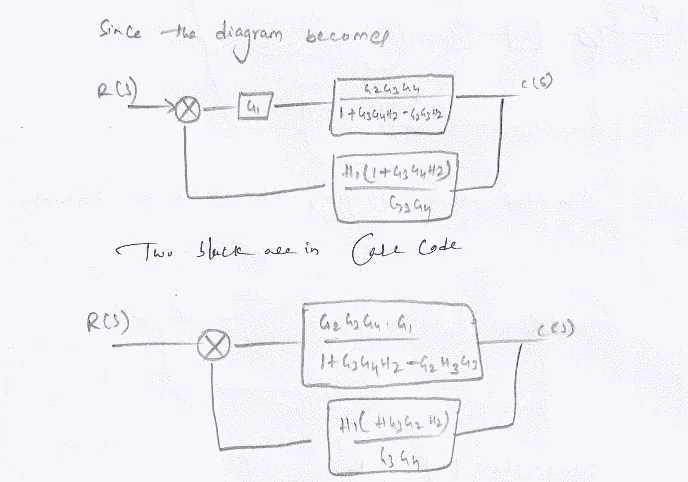 Since the diagram becomes
R(S)
G1
G2G3G4
1+G3G4H2-G2G3H2
C(S)
H1(1+G3G4H2)
G3G4
Two block are in Case Code
R(S)
G2G3G4.G1
1+G3G4H2-G2H3G3
C(S)
H1(HG3G2H2)
G3G4